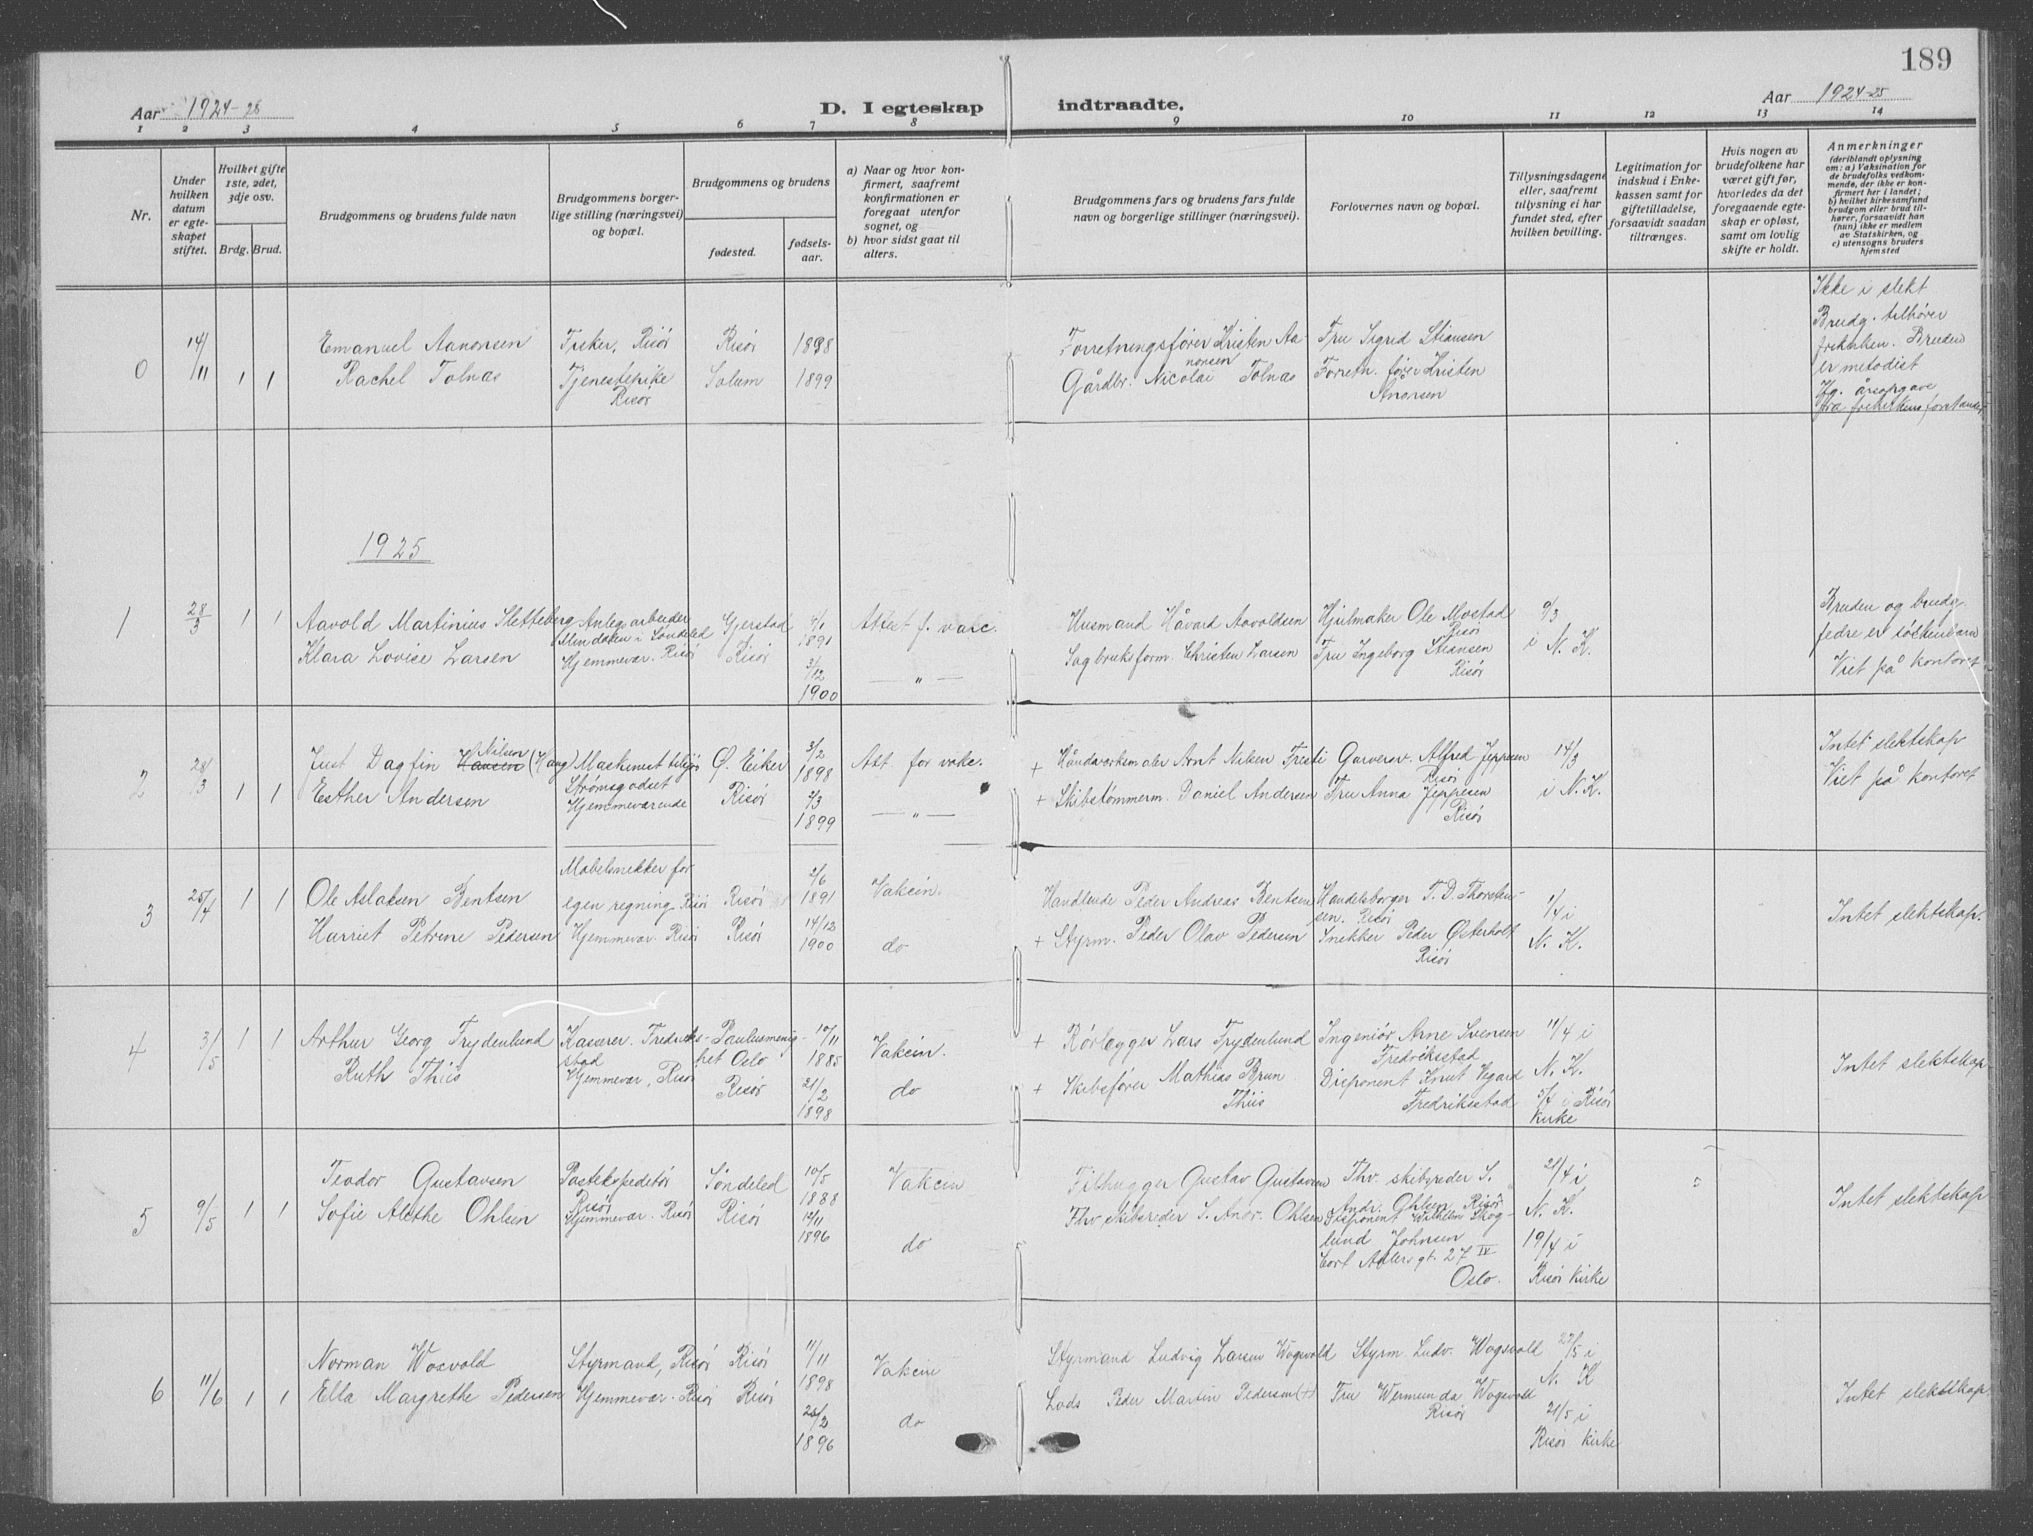 189
Aar 1924-25
D. I egteskap indtraadte.
Aar 1924-25
1 2 3 4 5 6 7 8 9 10 11 12 13 14
Nr.
Under hvilken datum er egteskapet stiftet.
Hvilket gifte 1ste, 2det, 3dje osv.
Brdg. Brud.
Brudgommens og brudens fulde navn
Brudgommens borgerlige stilling (næringsvei) og bopæl.
Brudgommens og brudens
fødested.
fødselsaar.
a) Naar og hvor konfirmert, saafremt konfirmationen er foregaat utenfor sognet, og
b) hvor sidst gaat til alters.
Brudgommens fars og brudens fars fulde navn og borgerlige stillinger (næringsvei).
Forlovernes navn og bopæl.
Tillysningsdagene eller, saafremt tillysning ei har fundet sted, efter hvilken bevilling.
Legitimation for indskud i Enkekassen samt for giftetilladelse, forsaavidt saadan tiltrænges.
Hvis nogen av brudefolkene har været gift før, hvorledes da det foregaaende egteskap er opløst, samt om lovlig skifte er holdt.
Anmerkninger
(deriblandt oplysning om: a) Vaksination for de brudefolks vedkommende, der ikke er konfirmert her i landet; b) hvilket kirkesamfund brudgom eller brud tilhører, forsaavidt han (hun) ikke er medlem av Statskirken, og c) utensogns bruders hjemsted
0 14/11 1 1
Emanuel Aanonsen Fisker, Risør Risør 1898
Rachel Tolnas Tjenestepike Risør Solum 1899
Forretningsfører Kristen Aanonsen
Gårdbr. Nicolai Tolnas
Fru Sigrid Stiansen
Forretn. fører Kristen Anonsen
Ikke i slekt
Brudg. tilhører
frikirken. Bruden
er metodist
Ifg. årsopgave
fra frikirkens forstander
1925
1 28/3 1 1
Aavold Martinius Sletteberg Anlegsarbeider
i Søndeled Gjerstad 4/1 1891 Attest f. vacc.
Klara Lovise Larsen Hjemmevær. Risør Risør 3/12 1900 — „ —
Husmand Håvard Aavoldsen
Sagbruksform. Christen Larsen
Hjulmaker Ole Mostad Risør
Fru Ingeborg Stiansen Risør
8/3
i N. K.
Bruden og brudg.
fedre er søskenbarn
Viet på kontoret
2 28/3 1 1
Just Dagfin Hansen Nilsen (Haug) Maskinist
Strømsgodset Ø. Eiker 3/2 1898 Att. for vakc.
Esther Andersen Hjemmeværende Risør 2/3 1899 — „ —
+ Håndverksmaler Arnt Nilsen
+ Skibstømmerm. Daniel Andersen
Garversv. Alfred Jeppesen Risør
Fru Anna Jeppesen Risør
14/3
i N. K.
Intet slektskap
Viet på kontoret
3 25/4 1 1
Ole Aslaksen Bentsen Møbelsnekker for
egen regning Risør Risør 2/6 1891 Vakcin.
Harriet Petrine Pedersen Hjemmevær. Risør Risør 14/12 1900 do
Handlende Peder Andreas Bentsen
+ Styrm. Peder Olav Pedersen
Handelsborger T. D. Thorstensen. Risør
Snekker Peder Østerholt Risør
1/4 i
N. K.
Intet slektskap.
4 3/5 1 1
Arthur Georg Frydenlund Kasserer. Fredrikstad
Paulusmenighet Oslo 10/11 1885 Vakcin.
Ruth Thiis Hjemmevær, Risør Risør 21/2 1898 do
+ Rørlegger Lars Frydenlund
+ Skibsfører Mathias Brun Thiis
Ingeniør Arne Svensen Fredrikstad
Disponent Knut Vegard Fredriksstad
11/4 i
N. K.
5/4 i Risør
Kirke
Intet slektskap
5 9/5 1 1
Teodor Gustavsen Postekspeditør Risør Søndeled 10/5 1888 Vakcin
Sofie Alethe Ohlsen Hjemmevær. Risør Risør 14/11 1896 do
Filhugger Gustav Gustavsen
Fhv. skibsreder S. Andr. Ohlsen
Fhv. skibsreder S. Andr. Ohlsen Risør
Disponent Wilhelm Skoglund Johnsen
Cort Adlers gt. 27 IV
Oslo.
21/4 i
N. K.
19/4 i
Risør Kirke
Intet slektskap
6 11/6 1 1
Norman Woxvold Styrmand, Risør Risør 11/11 1898 Vakcin
Ella Margrethe Pedersen Hjemmevær. Risør Risør 26/2 1896 do
Styrmand Ludvig Larsen Wogsvold
Lods Peder Martin Pedersen (+)
Styrm. Ludv. Wogsvold
Fru Wermunda Wogsvold Risør
27/5 i
N. K
21/5 i
Risør Kirke
Intet slektskap.